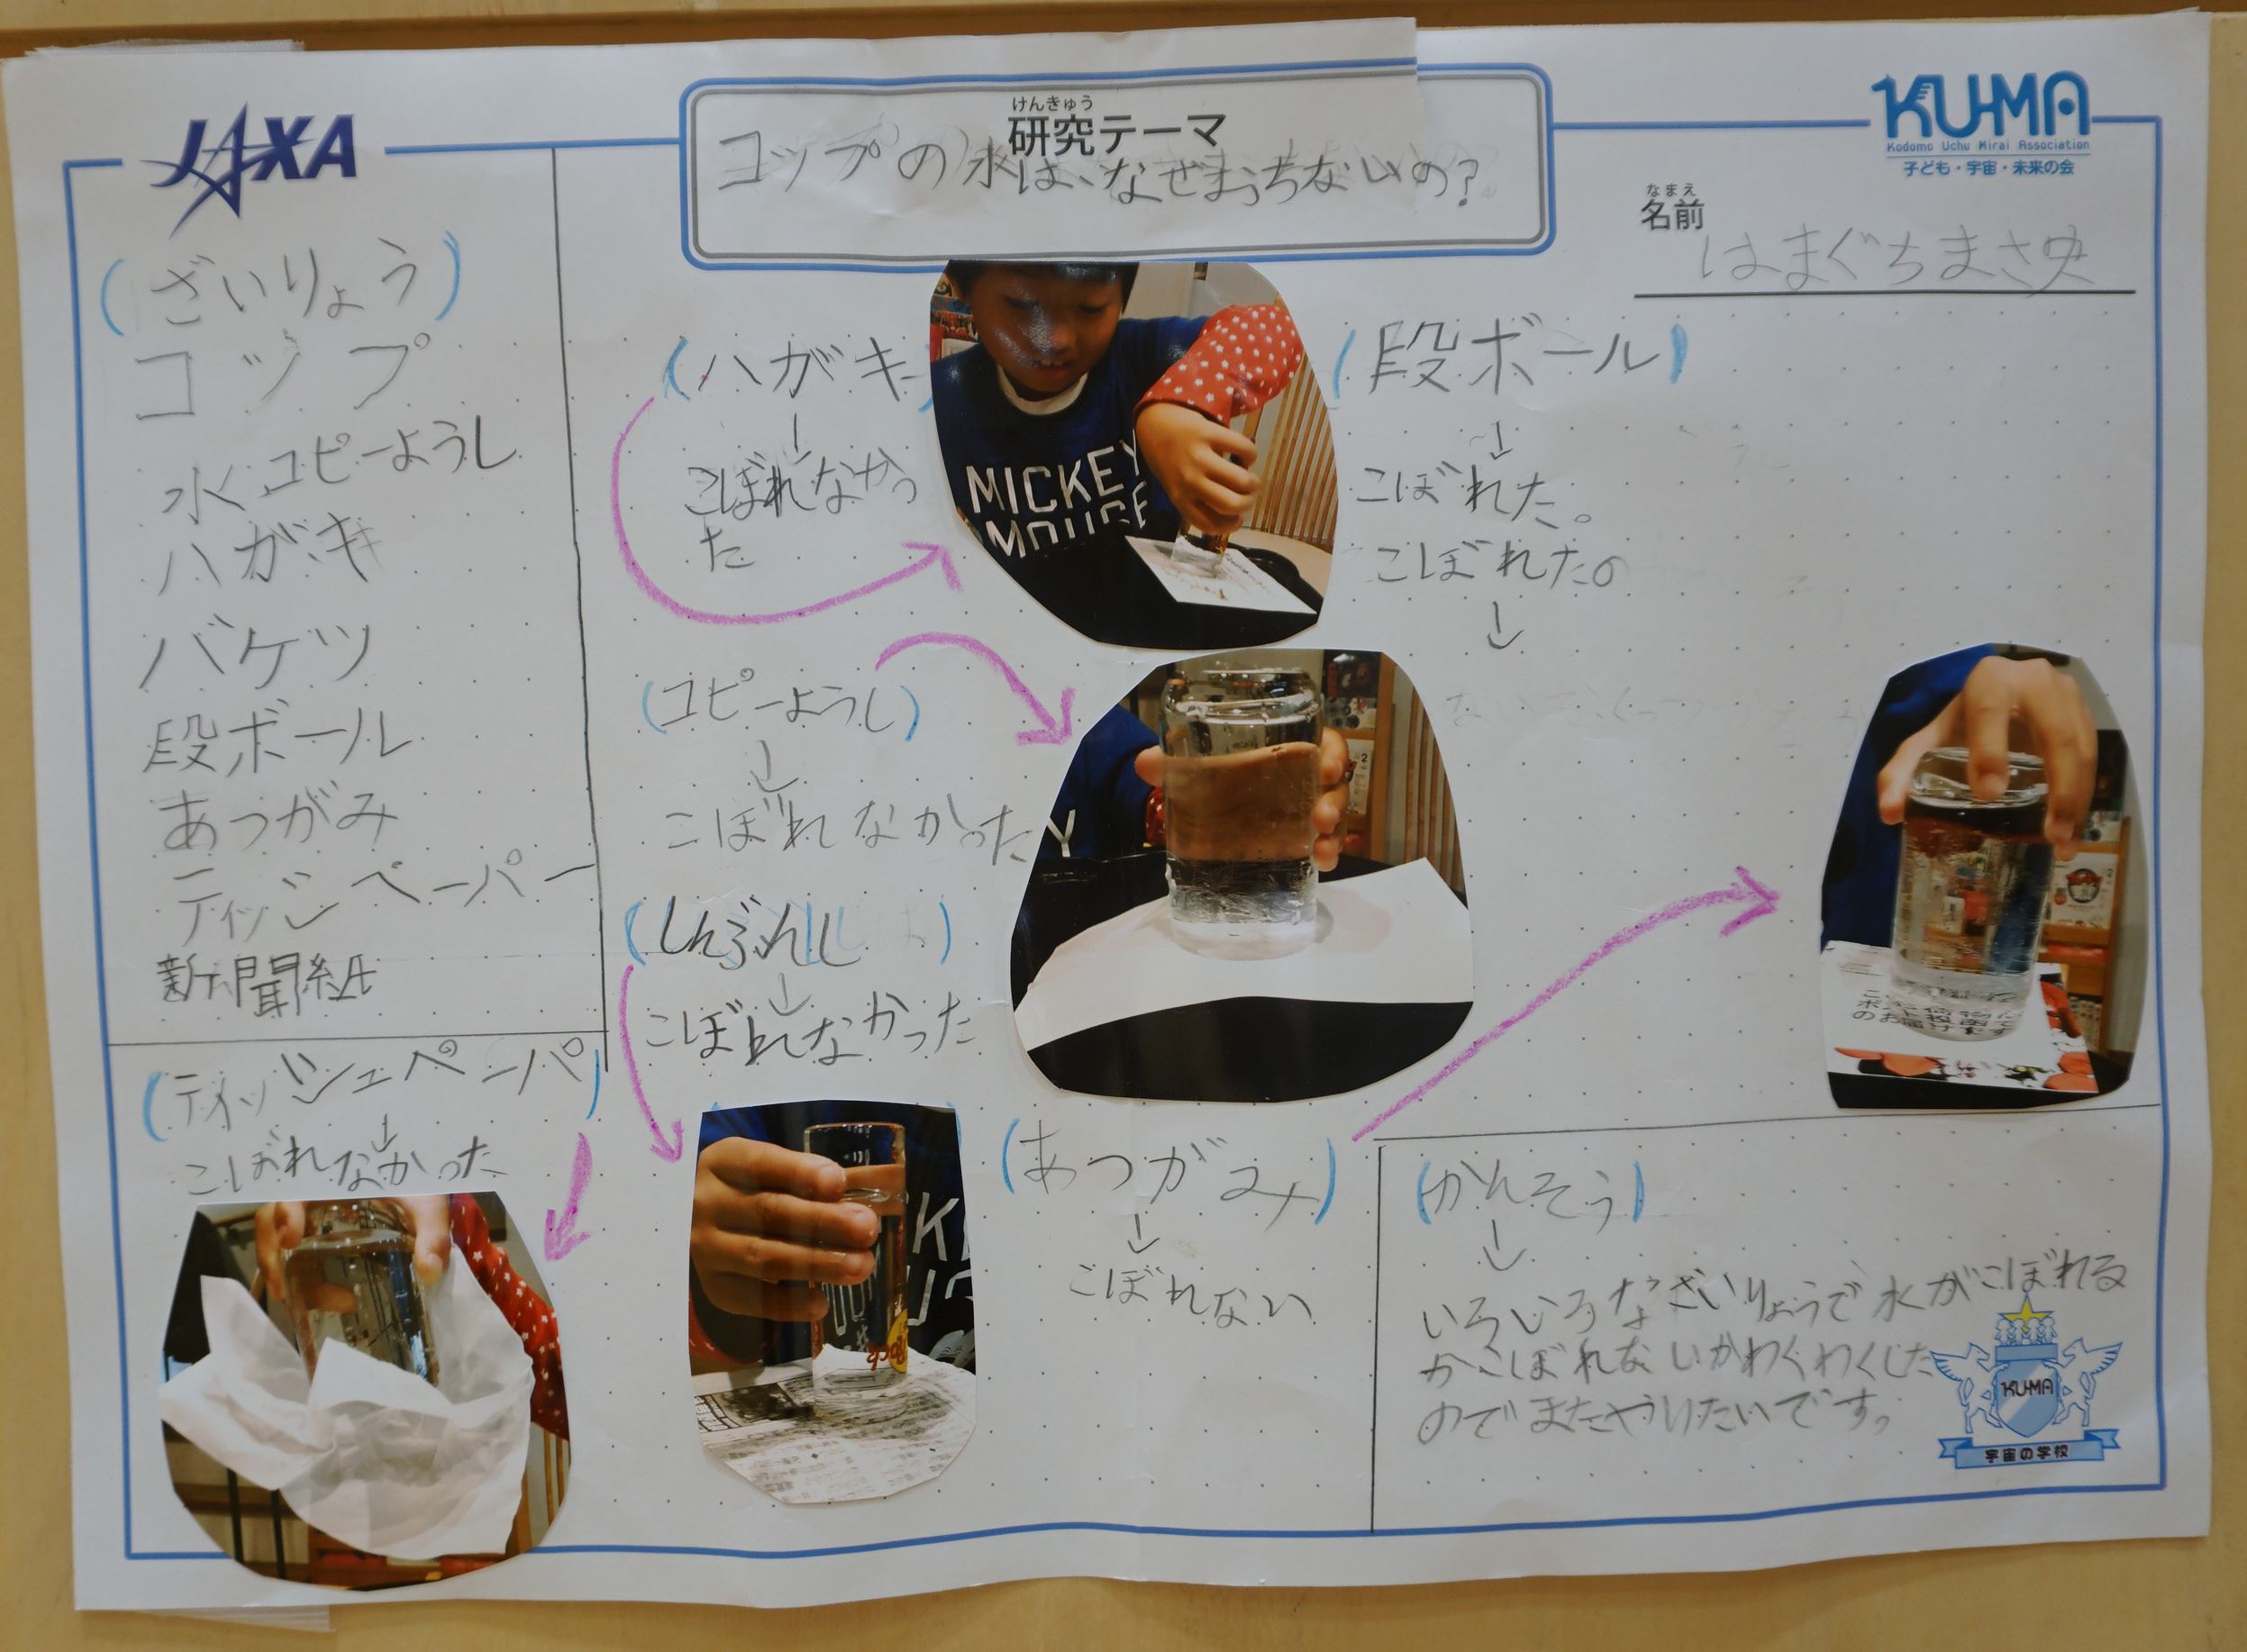 JAXA
けんきゅう
研究テーマ
コップの水は、なぜおちないの?
KU-MA
Kodomo Uchu Mirai Association
子ども・宇宙・未来の会
なまえ
名前
はまぐちまさ史
(ざいりょう)
コップ
水 コピーようし
ハガキ
バケツ
段ボール
あつがみ
ティッシペーパー
新聞紙
(ティッシュペーパ)
↓
こぼれなかった
(ハガキ
↓
こぼれなかっ
た
MICKEY
MOUSE
(コピーようし)
↓
こぼれなかった
(しんぶんし)
↓
こぼれなかった
(あつがみ)
↓
こぼれない
(段ボール)
↓
こぼれた。
こぼれた。
↓
(かんそう)
↓
いろいろなざいりょうで水がこぼれる
かこぼれないかわくわくした
のでまたやりたいです。
KU-MA
宇宙の学校